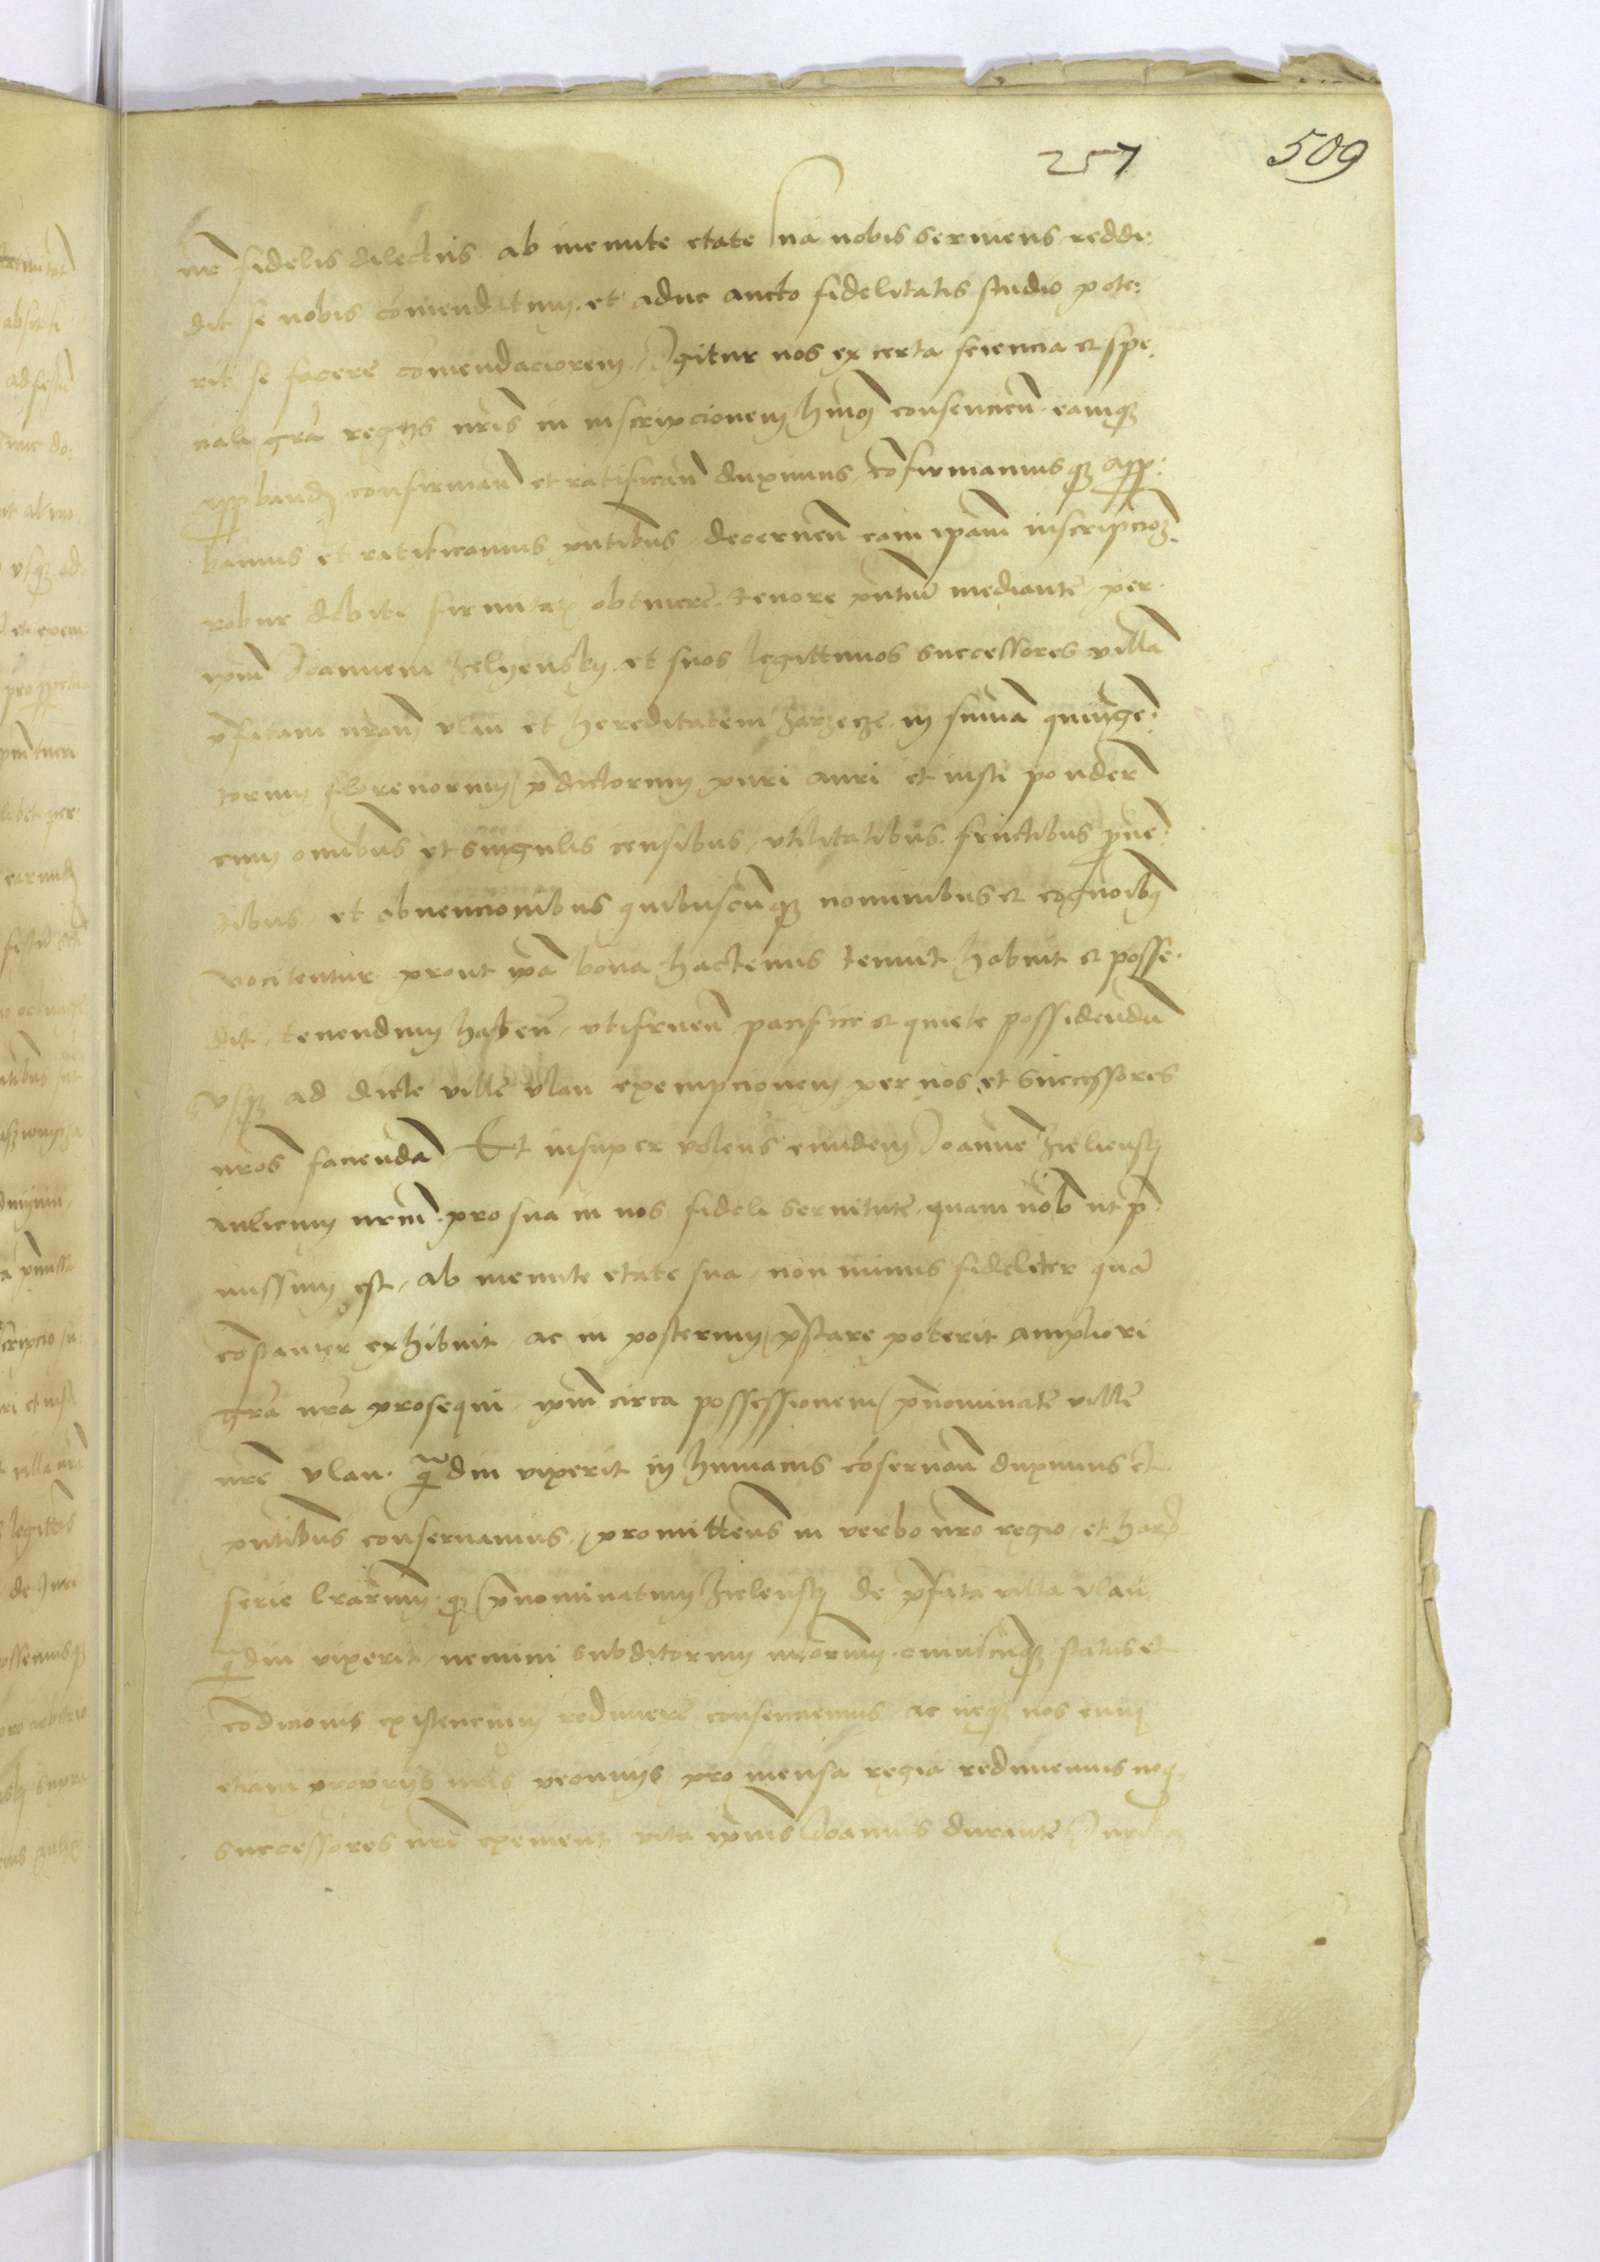 257 509
nr fidelis dilectus ab ineunte etate sua nobis serviens reddi:
dit se nobis comendatum et aduc aucto fidelitatis studio pote:
rit se facere comendaciorem, Igitur nos ex certa sciencia et spe
ciali gra regys nris in inscripcionem hmoi conscencien eamq
approband confirman et ratifican duximus, confirmamusq appro:
bamus et ratificamus pntibus, decernen eam ipam inscripcioem
robur debite firmitatis obtinere, tenore pntium mediante, per
ipm Joannem Zelyensky et suos legittimos successores villa
pfatam nram Ulan et hereditatem Zarzecze in suma quinge:
torum florenorum pdictorum puri auri et iusti ponder
cum omibus et singulis censibus, utilitatibus fructibus prove:
tibus et obvencionibus quibuscunq nominibus et cognoibus
vocitentur prout ipa bona hactenus tenuit habuit et posse
dit, tenendum haben, utifruen pacifice et quiete possidendu
usq ad dicte ville Ulan exempcionem per nos et successores
nros facienda Et insuper volens eundem Joanne Zieliensky
aulicum nrm pro sua in nos fideli servitute quam nob ut p
missum est, ab ineunte etate sua, non minus fideliter qua
constanter exhibuit, ac in posterum pstare poterit ampliori
gra nra prosequi, ipm circa possessionem pnominate ville
nre Ulan qdiu vixerit in humanis conservan duximus et
pntibus conservamus, promittens in verbo nro regio, et har
serie lrarum, q pnominatum Zielensky de pfata villa Ulan
qdiu vixerit, nemini subditorum nrorum cuiuscunq status et
condicionis existencium redimere consenciemus, ac neq nos eum
etiam propriis nris pecuniis pro mensa regia redimemus neq
successores nri eximent vita ipius Joannis durante